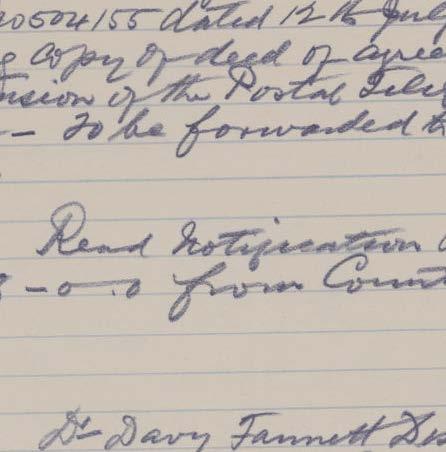 20504155 dated 12th July
g copy of deed of agree
nsion of the Postal Tele
- To be forwarded t
Read Notification
8-0-0 from Count
Dr Davy Fannett Dis